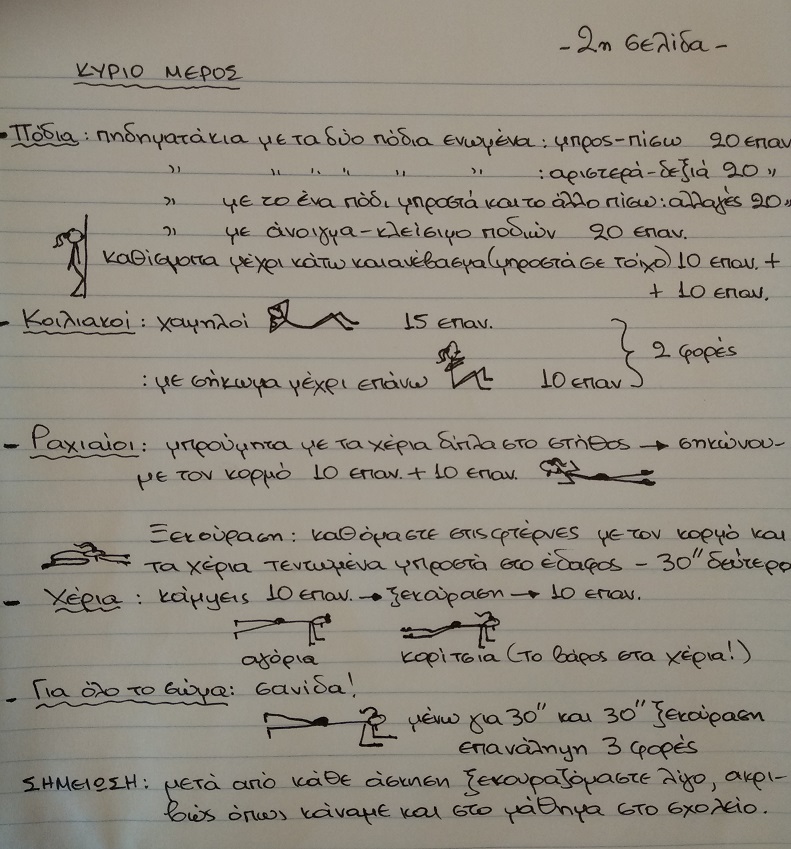 -2η σελίδα-
ΚΥΡΙΟ ΜΕΡΟΣ
• Πόδια: πηδηματάκια με τα δύο πόδια ενωμένα: μπρος-πίσω 20 επαν
" " " " " " : αριστερά-δεξιά 20 "
" με το ένα πόδι μπροστά και το άλλο πίσω: αλλαγές 20 "
" με άνοιγμα-κλείσιμο ποδιών 20 επαν.
καθίσματα μέχρι κάτω και ανέβασμα (μπροστά σε τοίχο) 10 επαν. +
+ 10 επαν.
- Κοιλιακοί: χαμηλοί 15 επαν.
} 2 φορές
: με σήκωμα μέχρι επάνω 10 επαν
- Ραχιαίοι: μπρούμητα με τα χέρια δίπλα στο στήθος → σηκώνου-
με τον κορμό 10 επαν. + 10 επαν.
Ξεκούραση: καθόμαστε στις φτέρνες με τον κορμό και
τα χέρια τεντωμένα μπροστά στο έδαφος - 30" δεύτερο
- Χέρια: κάμψεις 10 επαν. → ξεκούραση → 10 επαν.
αγόρια κορίτσια (το βάρος στα χέρια!)
- Για όλο το σώμα: σανίδα!
μένω για 30" και 30" ξεκούραση
επανάληψη 3 φορές
ΣΗΜΕΙΩΣΗ: μετά από κάθε άσκηση ξεκουραζόμαστε λίγο, ακρι-
βώς όπως κάναμε και στο μάθημα στο σχολείο.